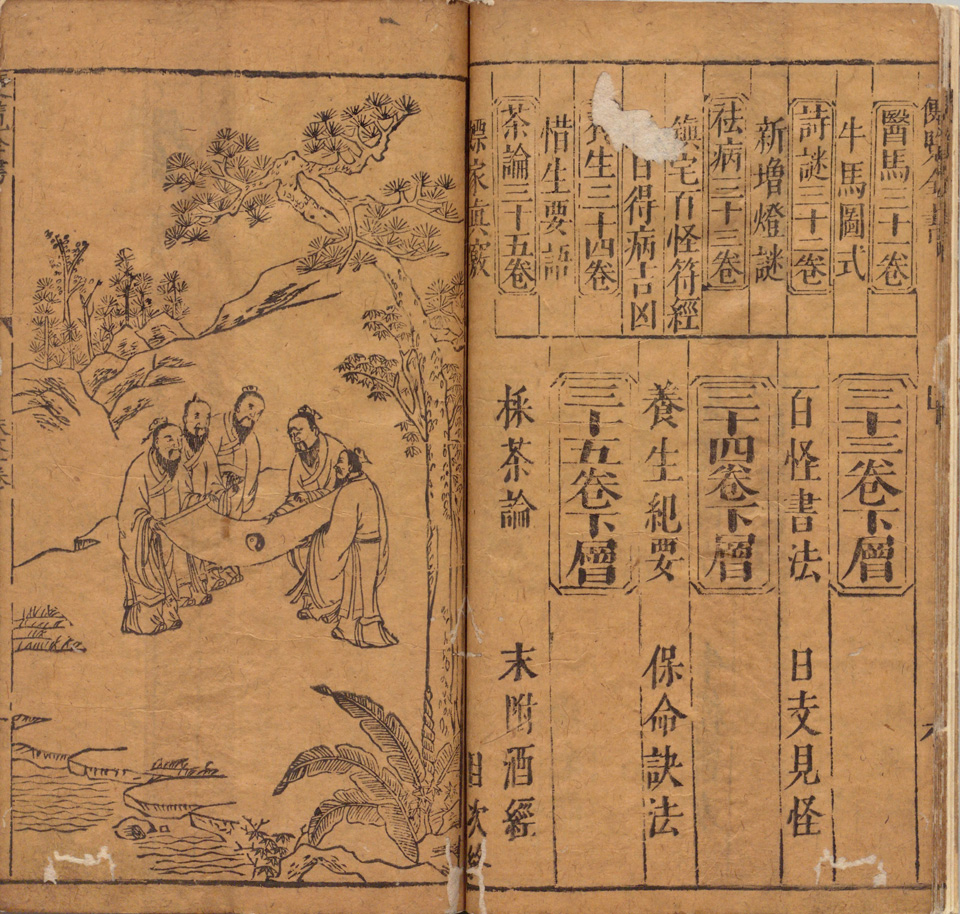 醫馬三十一卷
牛馬圖式
詩謎三十二卷
新增燈謎
祛病三十三卷
鎮宅百怪符經
日得病吉凶
生三十四卷
惜生要語
茶論三十五卷
三十三卷下層
百怪書法 日支見怪
三十四卷下層
養生紀要 保命訣法
三十五卷下層
採茶論 末附酒經
目次終